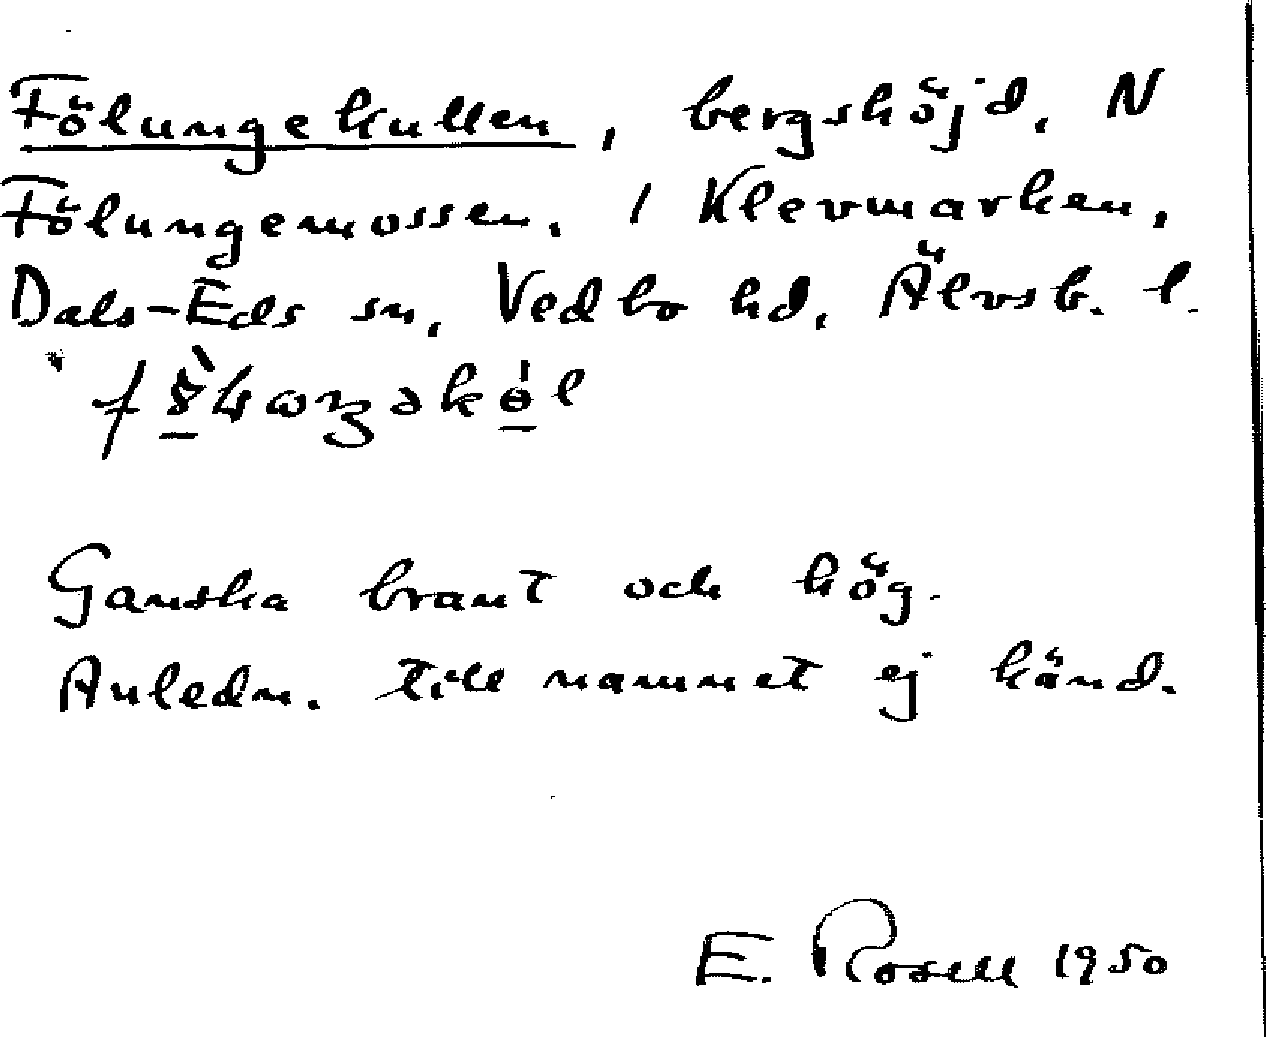 Fölungekullen, bergshöjd, N
Fölungemossen. / Klevmarken,
Dals-Eds sn, Vedbo hd, Älvsb. l.
Ganska brant och hög.
Anledn. till namnet ej känd.
E. Rosell 1950